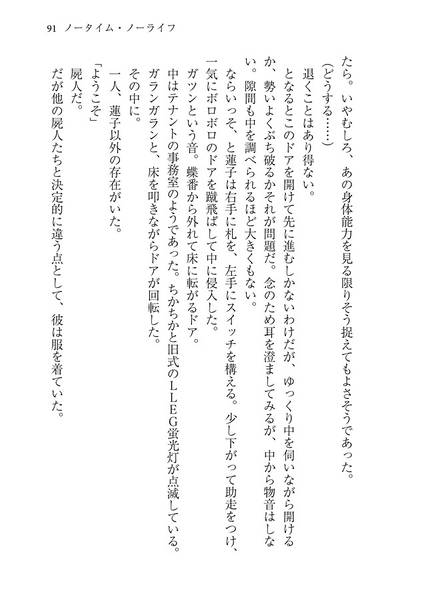 91 ノータイム・ノーライフ
たら。いやむしろ、あの身体能力を見る限りそう捉えてもよさそうであった。
（どうする……）
退くことはあり得ない。
となるとこのドアを開けて先に進むしかないわけだが、ゆっくり中を伺いながら開ける
か、勢いよくぶち破るかそれが問題だ。念のため耳を澄ましてみるが、中から物音はしな
い。隙間も中を調べられるほど大きくもない。
ならいっそ、と蓮子は右手に札を、左手にスイッチを構える。少し下がって助走をつけ、
一気にボロボロのドアを蹴飛ばして中に侵入した。
ガツンという音。蝶番から外れて床に転がるドア。
中はテナントの事務室のようであった。ちかちかと旧式のＬＬＥＧ蛍光灯が点滅している。
ガランガランと、床を叩きながらドアが回転した。
その中に。
一人、蓮子以外の存在がいた。
「ようこそ」
屍人だ。
だが他の屍人たちと決定的に違う点として、彼は服を着ていた。